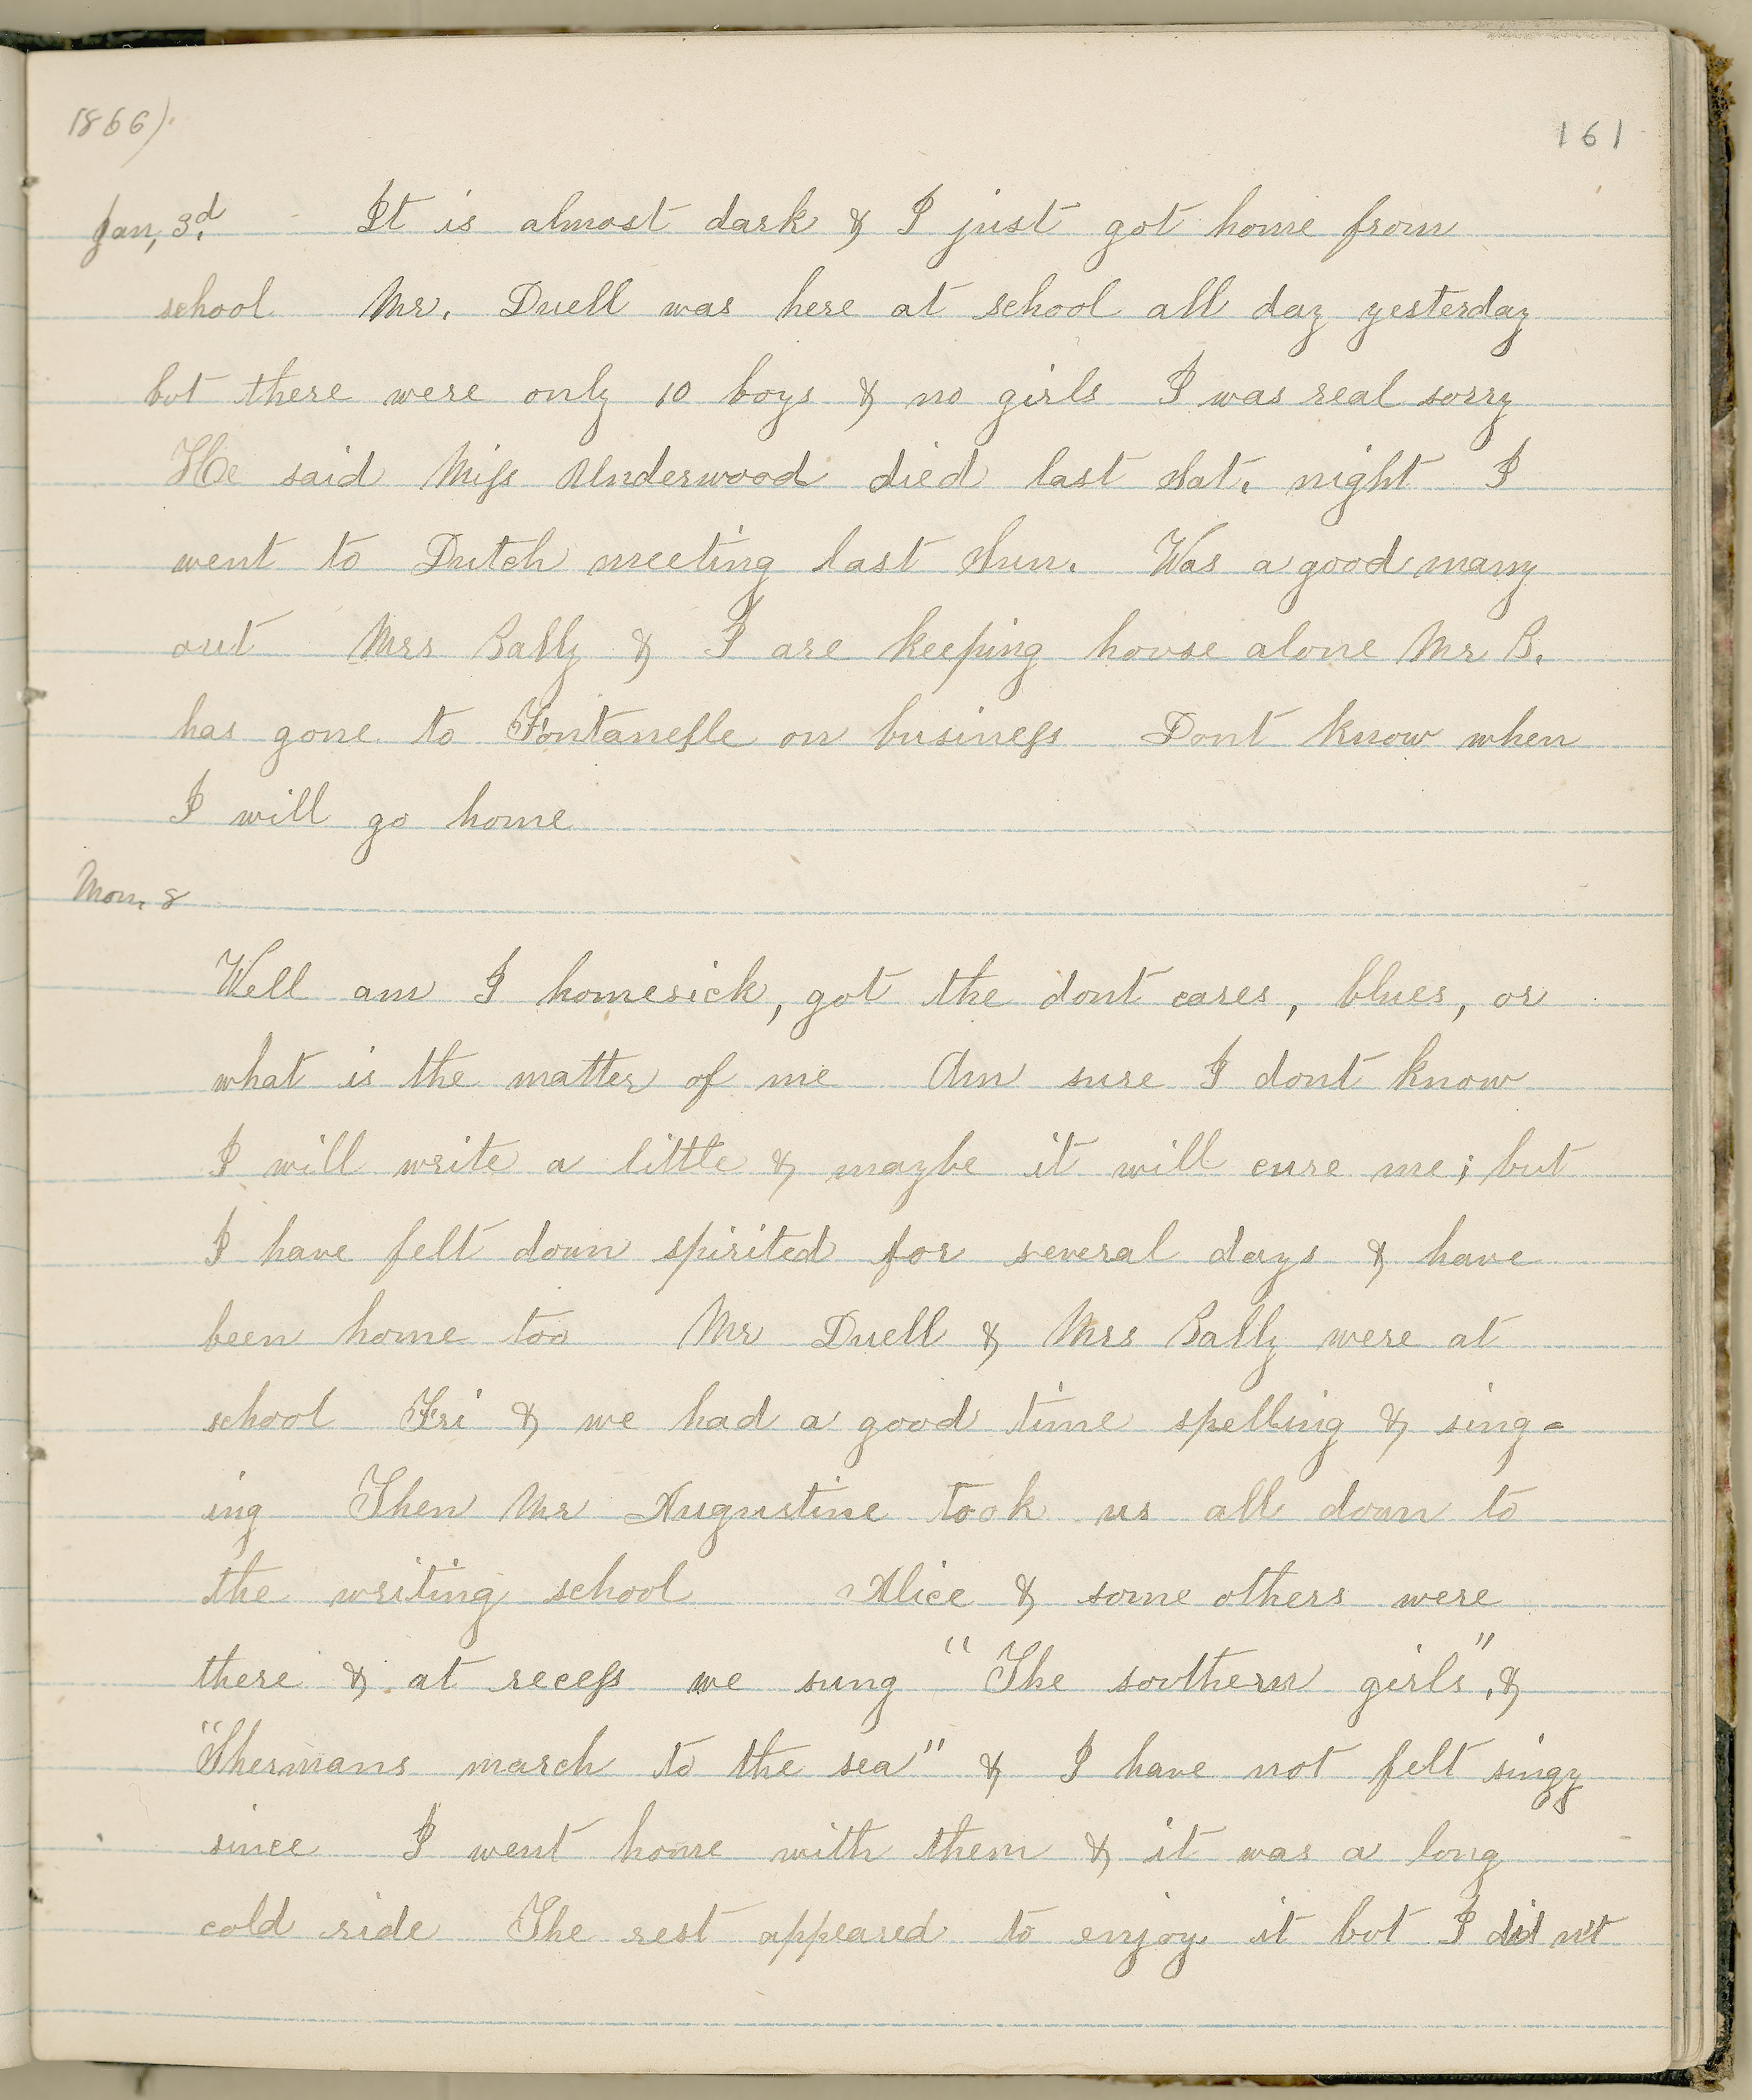 1866).
161
Jan, 3.d It is almost dark & I just got home from
school Mr. Duell was here at school all day yesterday
but there were only 10 boys & no girls I was real sorry
He said Miss Underwood died last Sat. night I
went to Dutch meeting last Sun. Was a good many
out Mrs Bally & I are keeping house alone Mr B.
has gone to Fontanelle on business Dont know when
I will go home
Mon, 8
Well am I homesick, got the dont cares, blues, or
what is the matter of me Am sure I dont know
I will write a little & maybe it will cure me; but
I have felt down spirited for several days & have
been home too Mr Duell & Mrs Bally were at
school Fri & we had a good time spelling & sing-
ing Then Mr Augustine took us all down to
the writing school Alice & some others were
there & at recess we sung "The southern girls", &
"Shermans march to the sea" & I have not felt singy
since I went home with them & it was a long
cold ride The rest appeared to enjoy it but I did n't